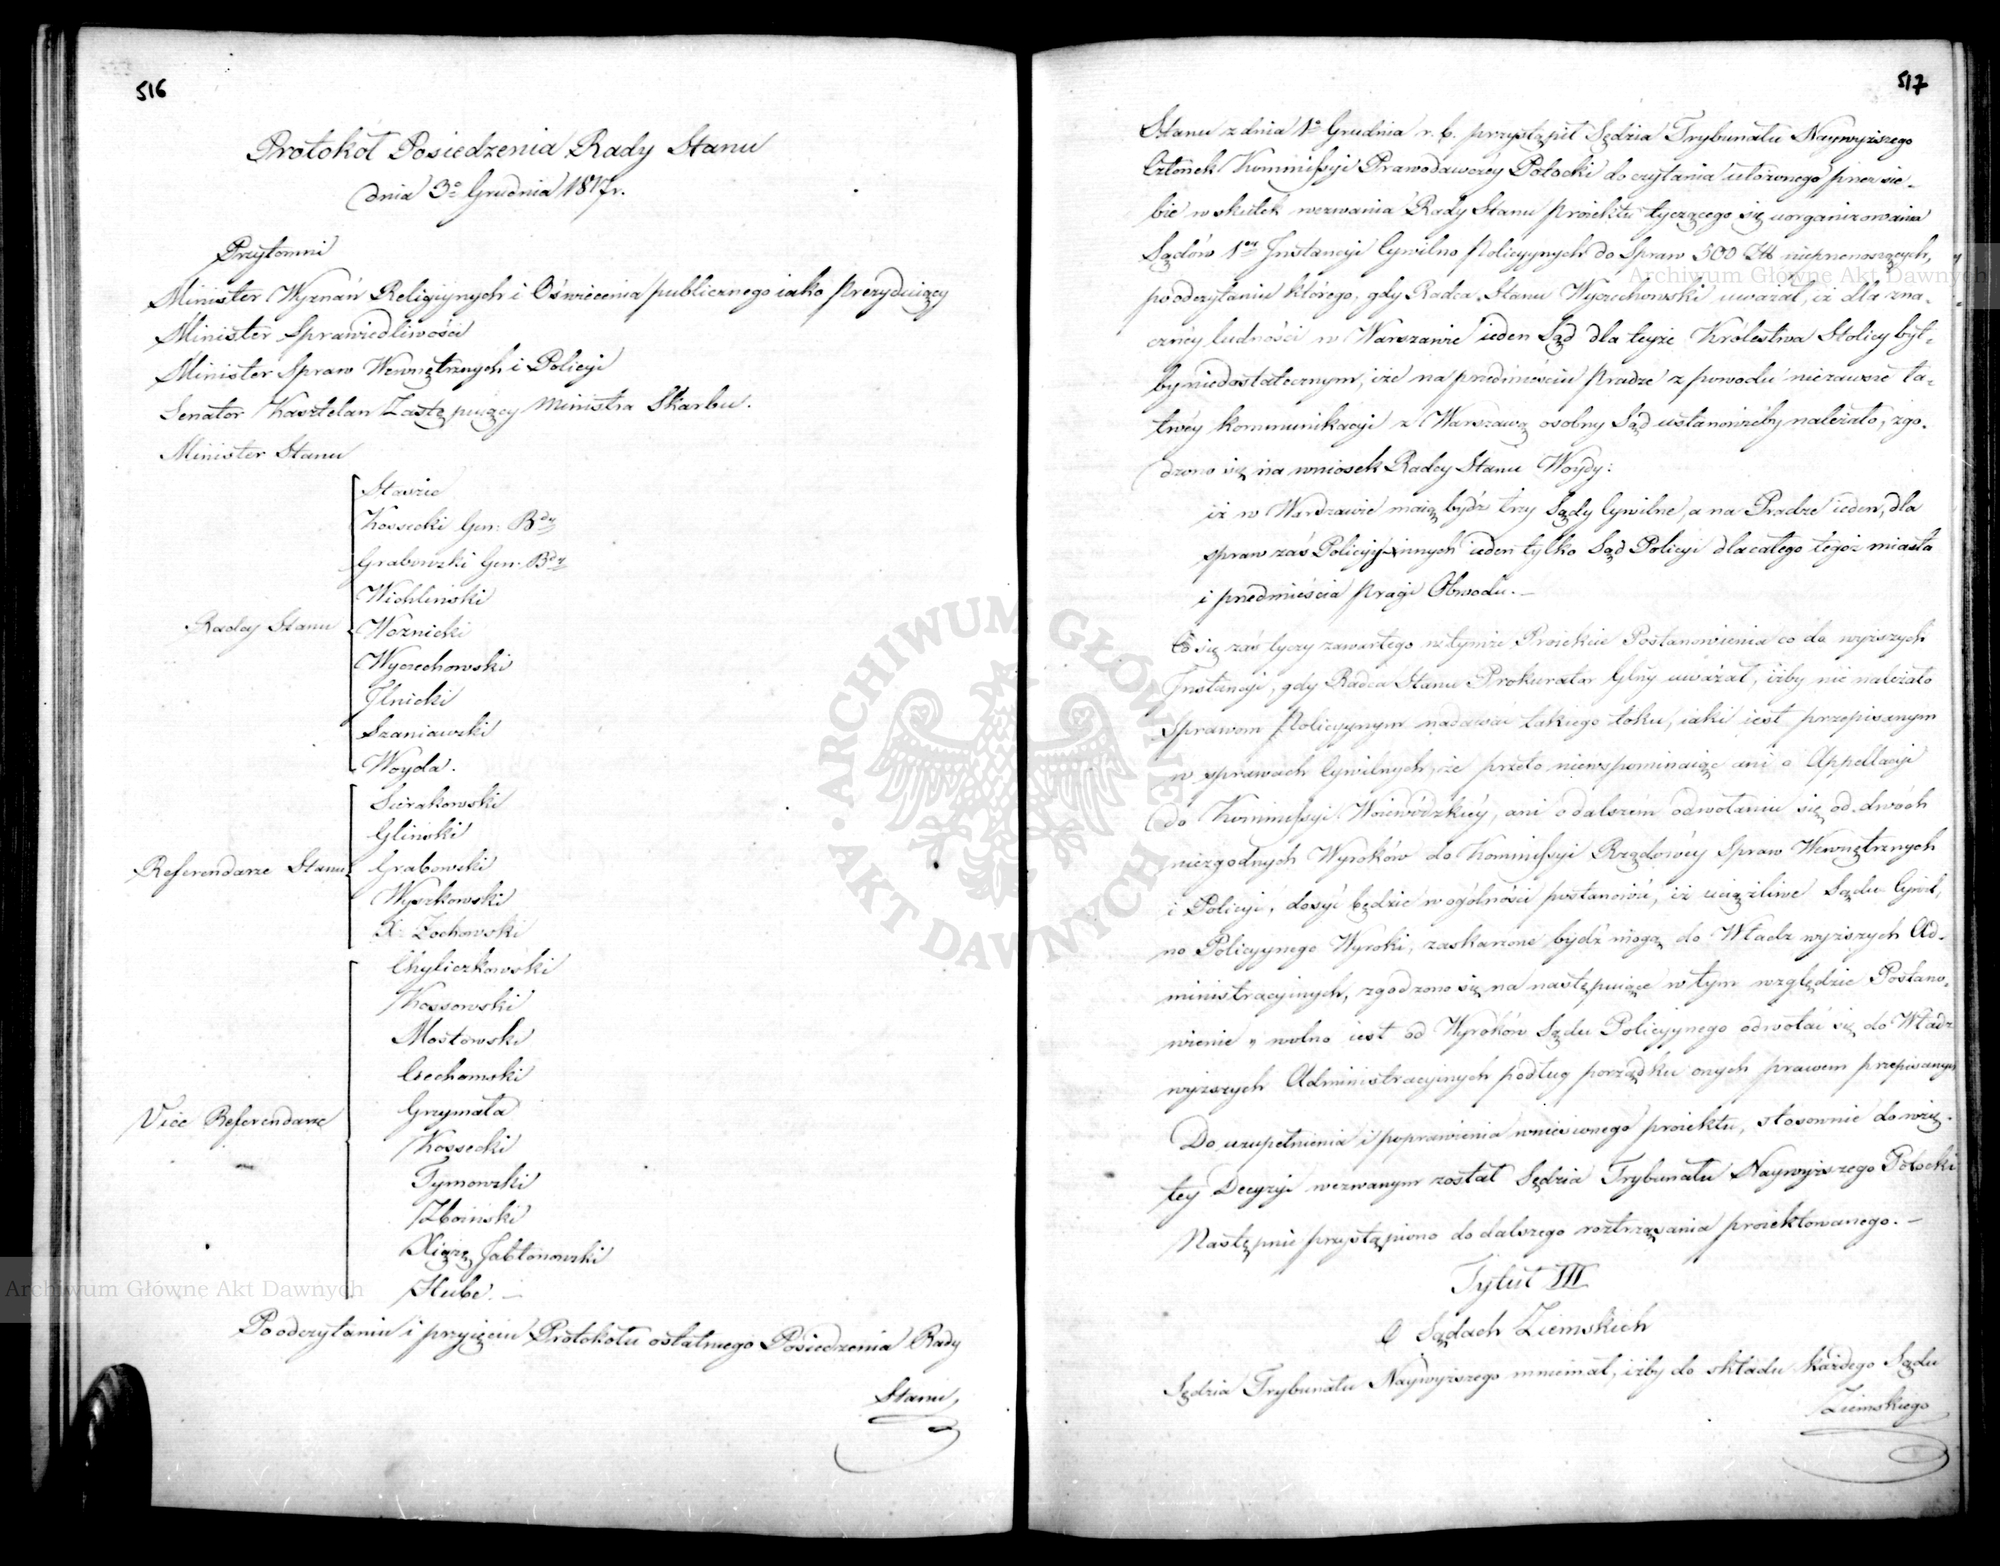 516
Protokół Posiedzenia Rady Stanu
dnia 3º Grudnia 1817 r.
Przytomni
Minister Wyznań Religiynych i Oświecenia publicznego iako Prezyduiący
Minister Sprawiedliwości
Minister Spraw Wewnętrznych i Policyi
Senator Kasztelan Zastępuiący Ministra Skarbu.
Minister Stanu
Radcy Stanu
Staszic
Kossecki Gen: Bdy
Grabowski Gen: Bdy
Wichliński
Woznicki
Wyczechowski
Ilnicki
Szaniawski
Woyda.
Referendarze Stanu
Sierakowski
Gliński
Grabowski
Wyszkowski
X. Żochowski
Vice Referendarze
Chyliczkowski
Kossowski
Mostowski
Ciechomski
Grzymała
Kossecki
Tymowski
Zboiński
Xiążę Jabłonowski
Hube. —
Po odczytaniu i przyięciu Protokołu ostatniego Posiedzenia Rady
Stanu
517
Stanu z dnia 1º Grudnia r. b. przystąpił Sędzia Trybunału Naywyższego
Członek Kommissyi Prawodawczéy Potocki do czytania ułożonego przez sie-
bie w skutek wezwania Rady Stanu proiektu tyczącego się uorganizowania
Sądów 1éy Instancyi Cywilno Policyynych do Spraw 500 Zł nieprzenoszących,
po odczytaniu którego, gdy Radca Stanu Wyczechowski uważał, iż dla zna-
cznéy ludności w Warszawie ieden Sąd dla teyże Królestwa Stolicy był-
by niedostatecznym, i że na przedmieściu Pradze z powodu niezawsze ła-
twéy kommunikacyi z Warszawą osobny Sąd ustanowićby należało, zgo-
dzono się na wniosek Radcy Stanu Woydy:
iż w Warszawie maią bydź trzy Sądy Cywilne, a na Pradze ieden, dla
spraw zaś Policyynnych ieden tylko Sąd Policyi dla całego tegoż miasta
i przedmieścia Pragi Obwodu. —
Co się zaś tyczy zawartego w tymże Proiekcie Postanowienia co do wyższych
Instancyi, gdy Radca Stanu Prokurator Glny uważał, iżby nie należało
Sprawom Policyynym nadawać takiego toku, iaki iest przepisanym
w sprawach Cywilnych, że przeto niewspominaiąc ani o Appellacyi
do Kommissyi Woiewódzkiéy, ani o dalszém odwołaniu się od dwóch
niezgodnych Wyroków do Kommissyi Rządowéy Spraw Wewnętrznych
i Policyi, dosyć będzie w ogólności postanowić, iż uciążliwe Sądu Cywil-
no Policyynego Wyroki, zaskarżone bydź mogą do Władz wyższych Ad-
ministracyinych, zgodzono się na następuiące w tym względzie Postano-
wienie „ wolno iest od Wyroków Sądu Policyynego odwołać się do Władz
wyższych Administracyinych podług porządku onych prawem przepisanym
Do uzupełnienia i poprawienia wniesionego proiektu, stosownie do wzię-
tey Decyzyi wezwanym został Sędzia Trybunału Naywyższego Potocki
Następnie przystąpiono do dalszego roztrząsania proiektowanego. —
Tytuł III
O Sądach Ziemskich
Sędzia Trybunału Naywyższego mniemał, iżby do składu każdego Sądu
Ziemskiego
ARCHIWUM GŁÓWNE AKT DAWNYCH
Archiwum Główne Akt Dawnych
Archiwum Główne Akt Dawnych